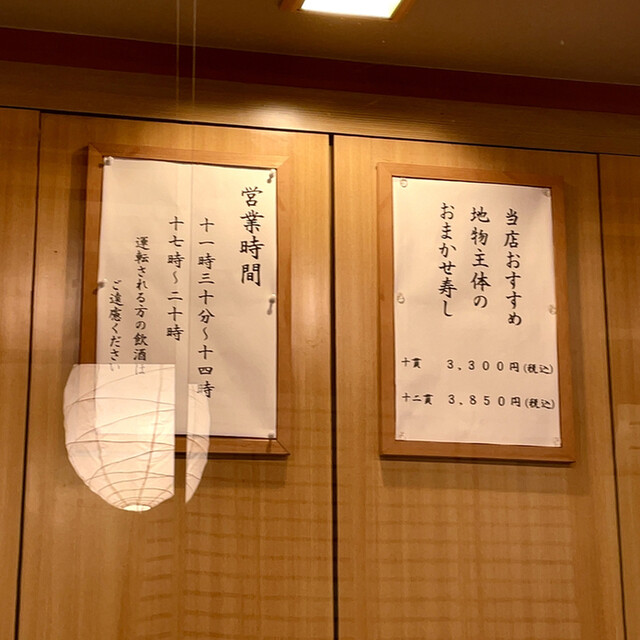 営業時間
十一時三十分～十四時
十七時～二十時
運転される方の飲酒は
ご遠慮ください
当店おすすめ
地物主体の
おまかせ寿し
十貫 3,300円(税込)
十二貫 3,850円(税込)